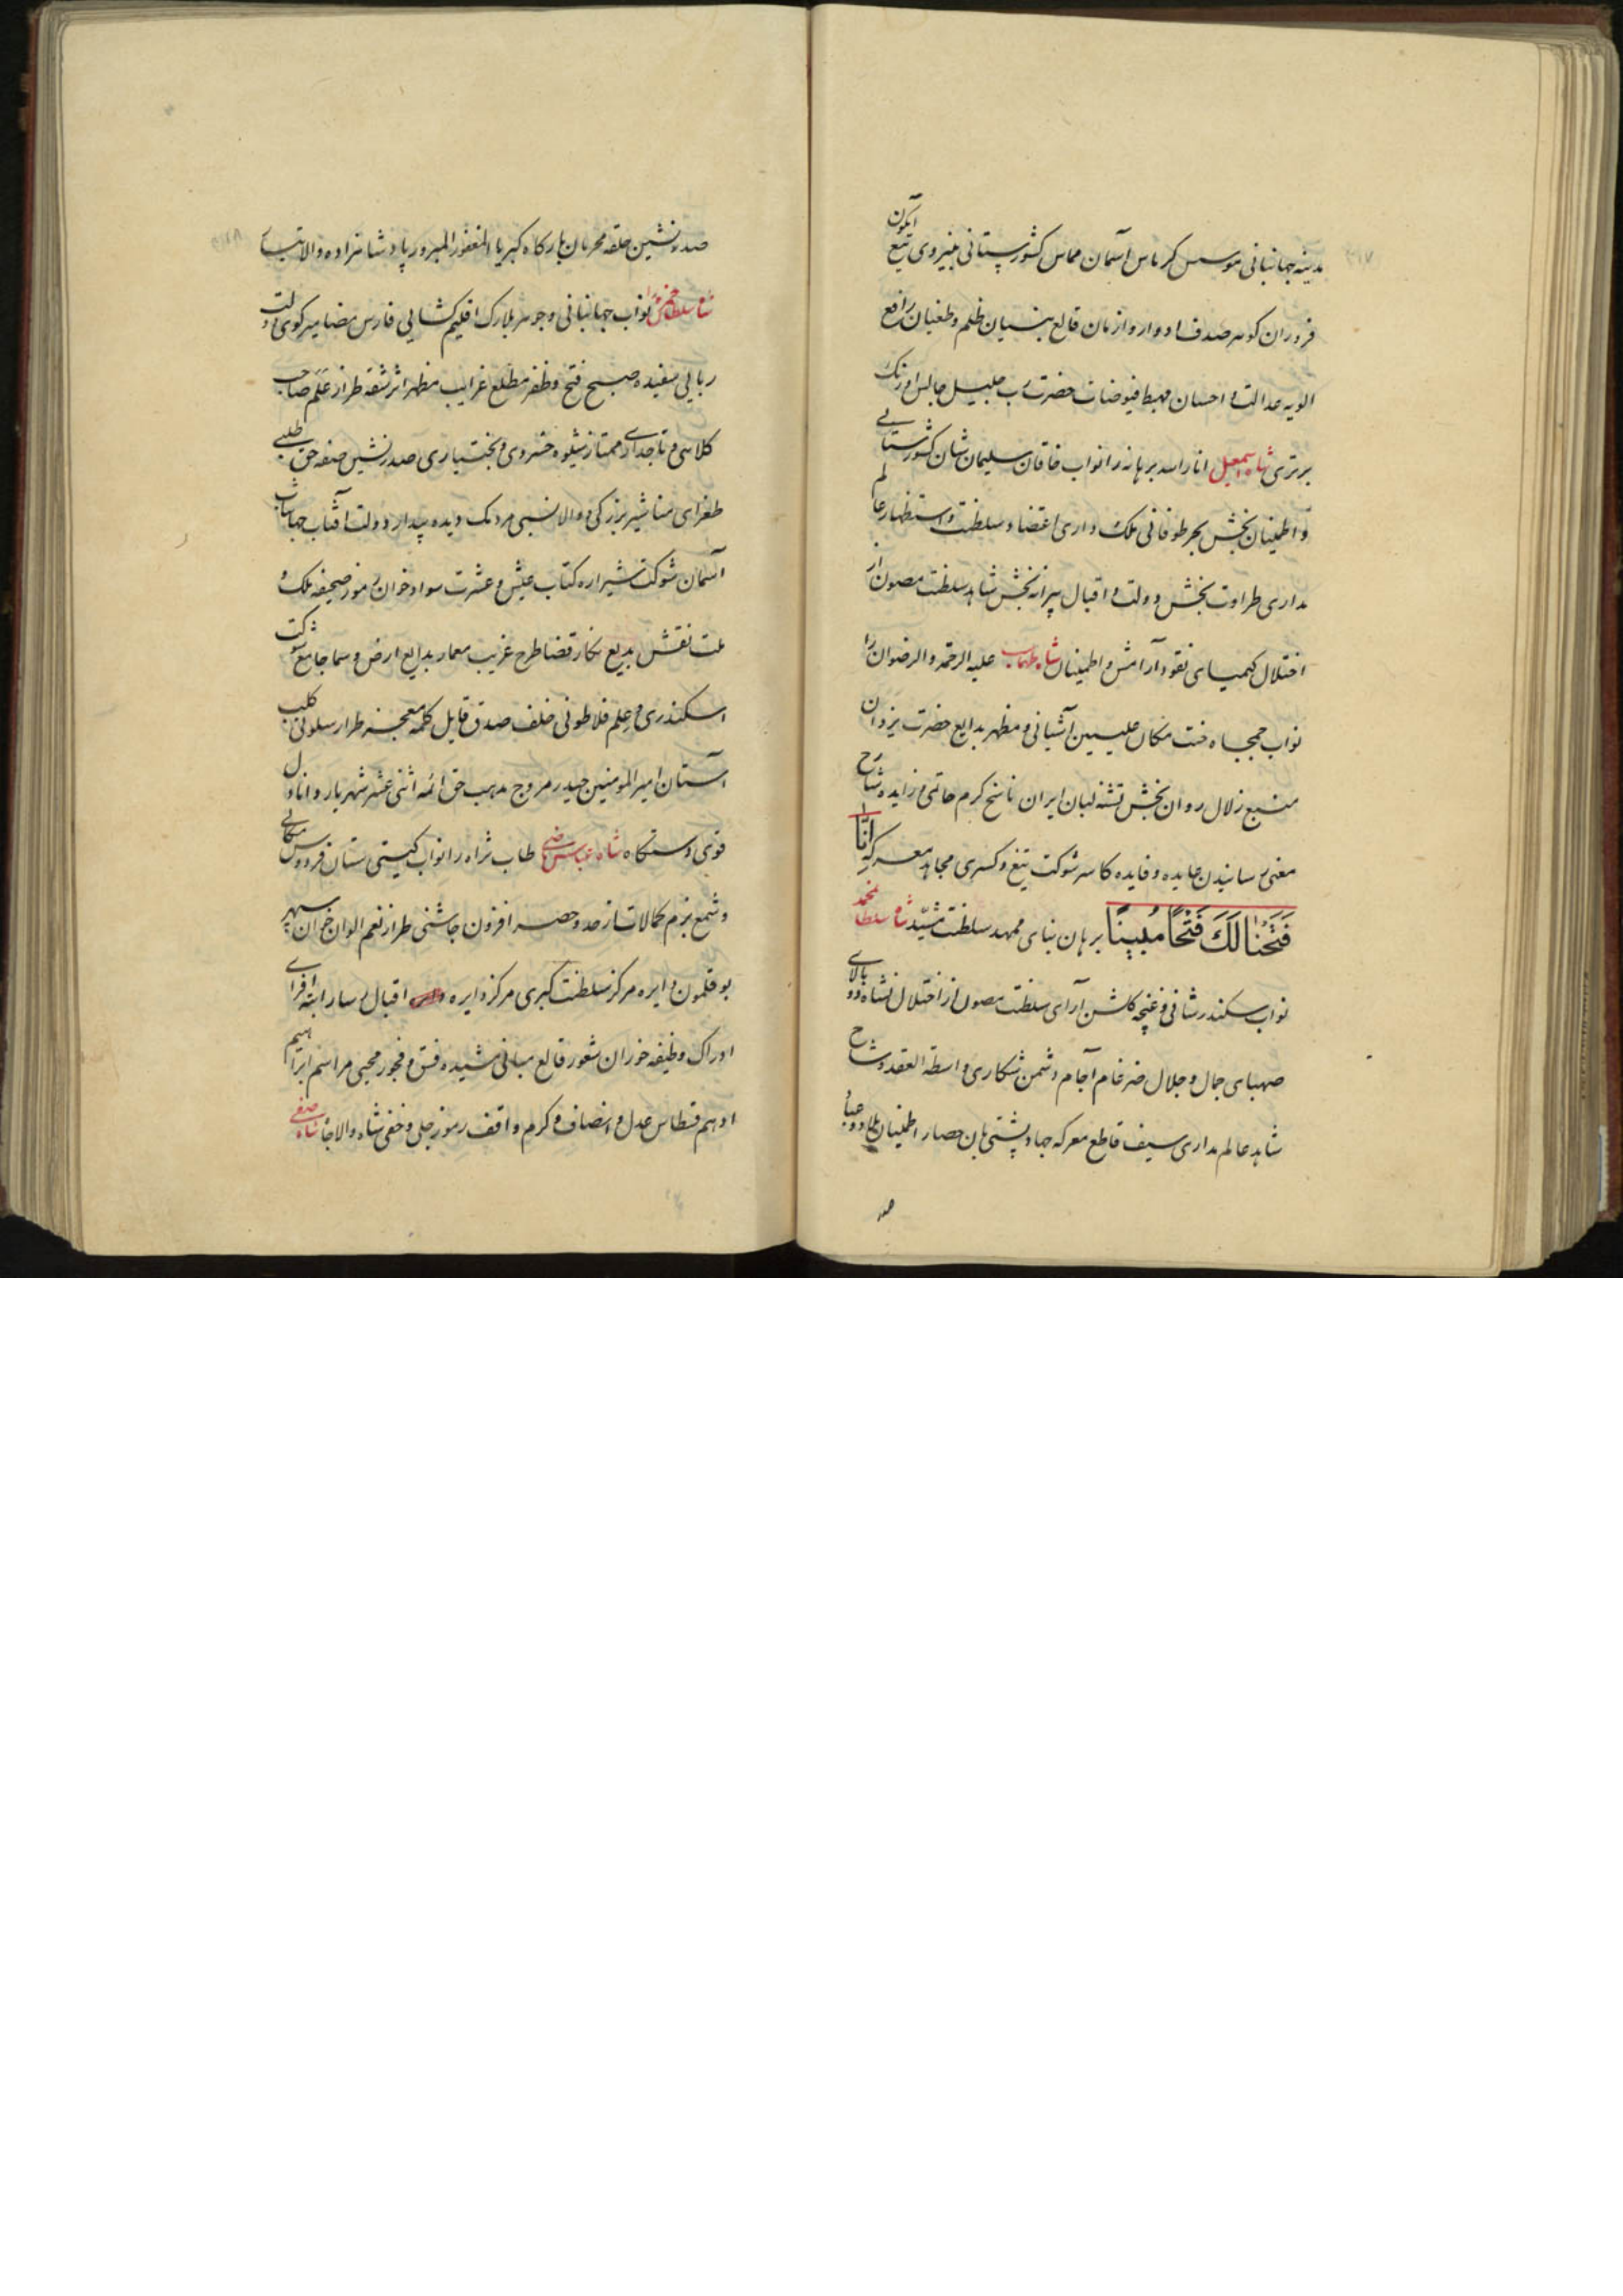 مدینه جهانبانی موسس کریاس آسمان مماس کشورستانی بنیروی تیغ آبگون
فروزان کوهر صدف ادوار و ازمان قالع بنیان ظلم و طغیان رافع
الویه عدالت و احسان مهبط فیوضات حضرت رب جلیل جالس اورنک
برتری شاه اسمعیل انار الله برهانه را نواب خاقان سلیمان شان کشورستانی
و اطمینان بخش بحر طوفانی ملک داری اعتضاد سلطنت و استظهار عالم
مداری طراوت بخش دولت و اقبال پیرانه بخش شاهد سلطنت مصون از
اختلال کیمیای نقود آرامش و اطمینان شاه طهماسب علیه الرحمه و الرضوان را
نواب جمجاه جنت مکان علیین آشیانی و مظهر بدایع حضرت یزدان
منبع زلال روان بخش تشنه لبان ایران ناسخ کرم حاتمی و زایده شارح
معنی رسانیدن عایده و فایده کاسر شوکت تیغ و کسری مجاهد معرکه إنا
فتحنا لك فتحا مبينا برهان بنای ممهد سلطنت مشید شاه سلطان محمد
نواب سکندرشانی و غنچه کلشن آرای سلطنت مصون از اختلال نشاه دوبالای
صهبای جمال و جلال ضرغام آجام دشمن شکاری واسطة العقد وشاح
شاهد عالم مداری سیف قاطع معرکه جهاد پشتی بان حصار اطمینان بلاد و عباد
صد
صدر نشین حلقه محرمان بارکاه کبریا المغفور المبرور پادشاهزاده والاتبار
شاه سلطان حمزه را نواب جهانبانی و جوهر بلارک اقلیم کشایی فارس مضامیر کوی دولت
ربایی سفیده صبح فتح و ظفر مطلع غرایب مظهر اثر شقه طراز علم صاحب
کلاهی و تاجداری ممتاز بشیوه خسروی و بختیاری صدر نشین صفه حق طلبی
طغرای مناشیر بزرکی و والانسبی مردمک دیده بیدار دولت آفتاب جهانتاب
آسمان شوکت شیرازه کتاب عیش و عشرت سواد خوان رموز صحیفه ملک و
ملت نقش بدیع نکار قضا طرح غریب معمار بدایع ارض و سما جامع شوکت
اسکندری و علم فلاطونی خلف صدق قایل کلمه معجز طراز سلونی کلب
آستان امیر المومنین حیدر مروج مذهب حق ائمه اثنی عشر شهریار دانادل
قوی دستکاه شاه عباس ماضی طاب ثراه را نواب کیتی ستان فردوس مکانی
و شمع بزم کمالات از حد و حصر افزون چاشنی طراز نعم الوان خوان سپهر
بوقلمون دایره مرکز سلطنت کبری مرکز دایره اقبال رسا راتبه افزای
ادراک وظیفه خوران شعور قالع مبانی مشیده فسق و فجور محیی مراسم ابراهیم
ادهم قسطاس عدل و انصاف و کرم واقف رموز جلی و خفی شاه والاجاه شاه صفی